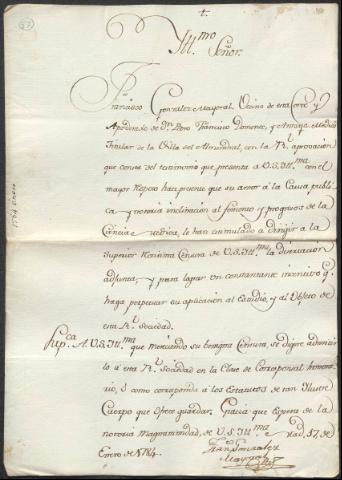 Yll.mo Señor.
Francisco Gonzalez Mayoral, Vecino de esta Corte y
Apoderado de Dn. Pedro Francisco Domenec, y Amaya Medico
Titular de la Villa del Almendral, con la Rl. aprovacion
que consta del testimonio que presenta a V.S. Ill.ma con el
mayor Respeto hace presente que su amor á la Causa publi
ca y notoria inclinacion al fomento y progresos de la
Ciencia Medica, le han estimulado a dirigir a la
Superior Rectisima Censura de V.S. Ill.ma la disertacion
adjunta, y para lograr un constante incentivo q.
haga perpetuar su aplicacion al Estudio, y al Obseq.o de
esta Rl. Sociedad.
Sup.ca A V.S. Ill.ma que mereciendo su benigna Censura, se digne admitir
lo á esta Rl. Sociedad en la Clase de Corresponsal honora
rio, ó como corresponda á los Estatutos de tan Ilustre
Cuerpo que ofrece guardar; Gracia que Espera de la
notoria Magnanimidad, de V.S. Ill.ma Mad.d 17, de
Enero de 1784.
Fran.co Gonzalez
Mayoral
1784 Enero